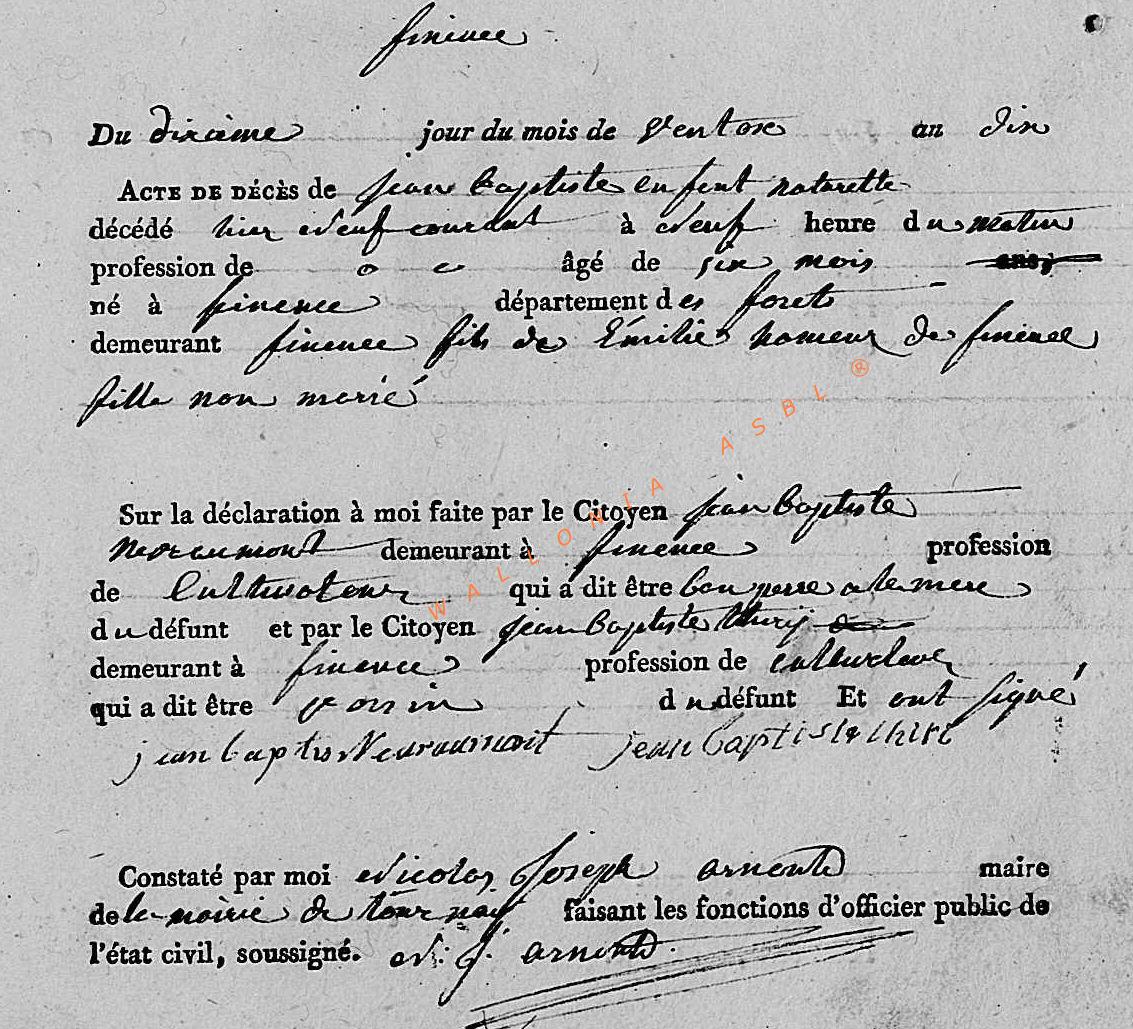 finence
Du dixième jour du mois de Ventose an dix
ACTE DE DÉCÈS de jean baptiste enfent naturelle
décédé hier neuf courant à neuf heure du matin
profession de âgé de six mois ans,
né à finence département des foret
demeurant finence fils de Émilie nameur de finence
fille non marié
Sur la déclaration à moi faite par le Citoyen jean baptiste
demeurant à finence profession
de Cultivateur qui a dit être bau pere a la mere
du défunt et par le Citoyen jean baptiste thiry
demeurant à finence profession de cultivateur
qui a dit être voisin du défunt Et ont signé
jean baptis Neuraumont jean baptiste thiri
Constaté par moi Nicolas Joseph arnould maire
de la mairie de tournay faisant les fonctions d'officier public de
l'état civil, soussigné. N. J. arnould
WALLONIA ASBL ®